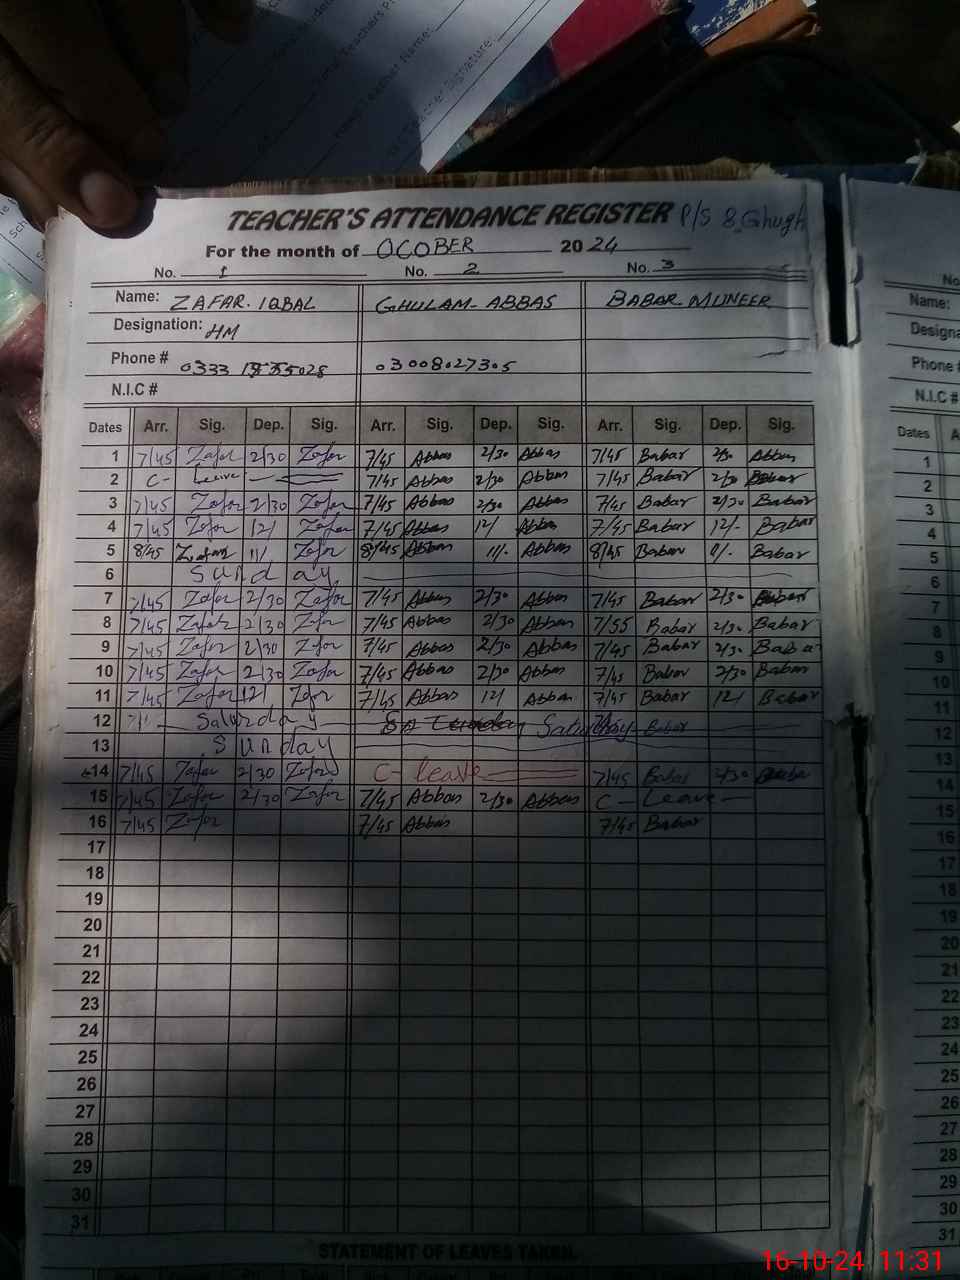 Teacher Name:
Teacher Signature:
TEACHER'S ATTENDANCE REGISTER P/S 8_Ghugh
For the month of OCOBER 2024
No. 1 No. 2 No. 3
Name: ZAFAR. IQBAL GHULAM ABBAS BABAR MUNEER
Designation: HM
Phone # 03008027305
N.I.C #
Dates Arr. Sig. Dep. Sig. Arr. Sig. Dep. Sig. Arr. Sig. Dep. Sig.
1 7/45 Zafar 2/30 Zafar 7/45 Abbas 2/30 Abbas 7/45 Babar 2/30 Abbas
2 C- Leave 7/45 Abbas 2/30 Abbas 7/45 Babar 2/30 Babar
3 7/45 Zafar 2/30 Zafar 7/45 Abbas 2/30 Abbas 7/45 Babar 2/30 Babar
4 7/45 Zafar 12/ Zafar 7/45 Abbas 12/ Abbas 7/45 Babar 12/- Babar
5 8/45 Zafar 11/ Zafar 8/45 Abbas 11/- Abbas 8/45 Babar 11/- Babar
6 Sunday
7 7/45 Zafar 2/30 Zafar 7/45 Abbas 2/30 Abbas 7/45 Babar 2/30 Babar
8 7/45 Zafar 2/30 Zafar 7/45 Abbas 2/30 Abbas 7/55 Babar 2/30 Babar
9 7/45 Zafar 2/30 Zafar 7/45 Abbas 2/30 Abbas 7/45 Babar 2/30 Babar
10 7/45 Zafar 2/30 Zafar 7/45 Abbas 2/30 Abbas 7/45 Babar 2/30 Babar
11 7/45 Zafar 12/ Zafar 7/45 Abbas 12/ Abbas 7/45 Babar 12/ Babar
12 Saturday Saturday Babar
13 Sunday
14 7/45 Zafar 2/30 Zafar C- leave 7/45 Babar 2/30 Babar
15 7/45 Zafar 2/30 Zafar 7/45 Abbas 2/30 Abbas C - Leave -
16 7/45 Zafar 7/45 Abbas 7/45 Babar
17
18
19
20
21
22
23
24
25
26
27
28
29
30
31
STATEMENT OF LEAVES TAKEN.
No
Name:
Designa
Phone #
N.I.C #
Dates A
1
2
3
4
5
6
7
8
9
10
11
12
13
14
15
16
17
18
19
20
21
22
23
24
25
26
27
28
29
30
31
16-10-24 11:31